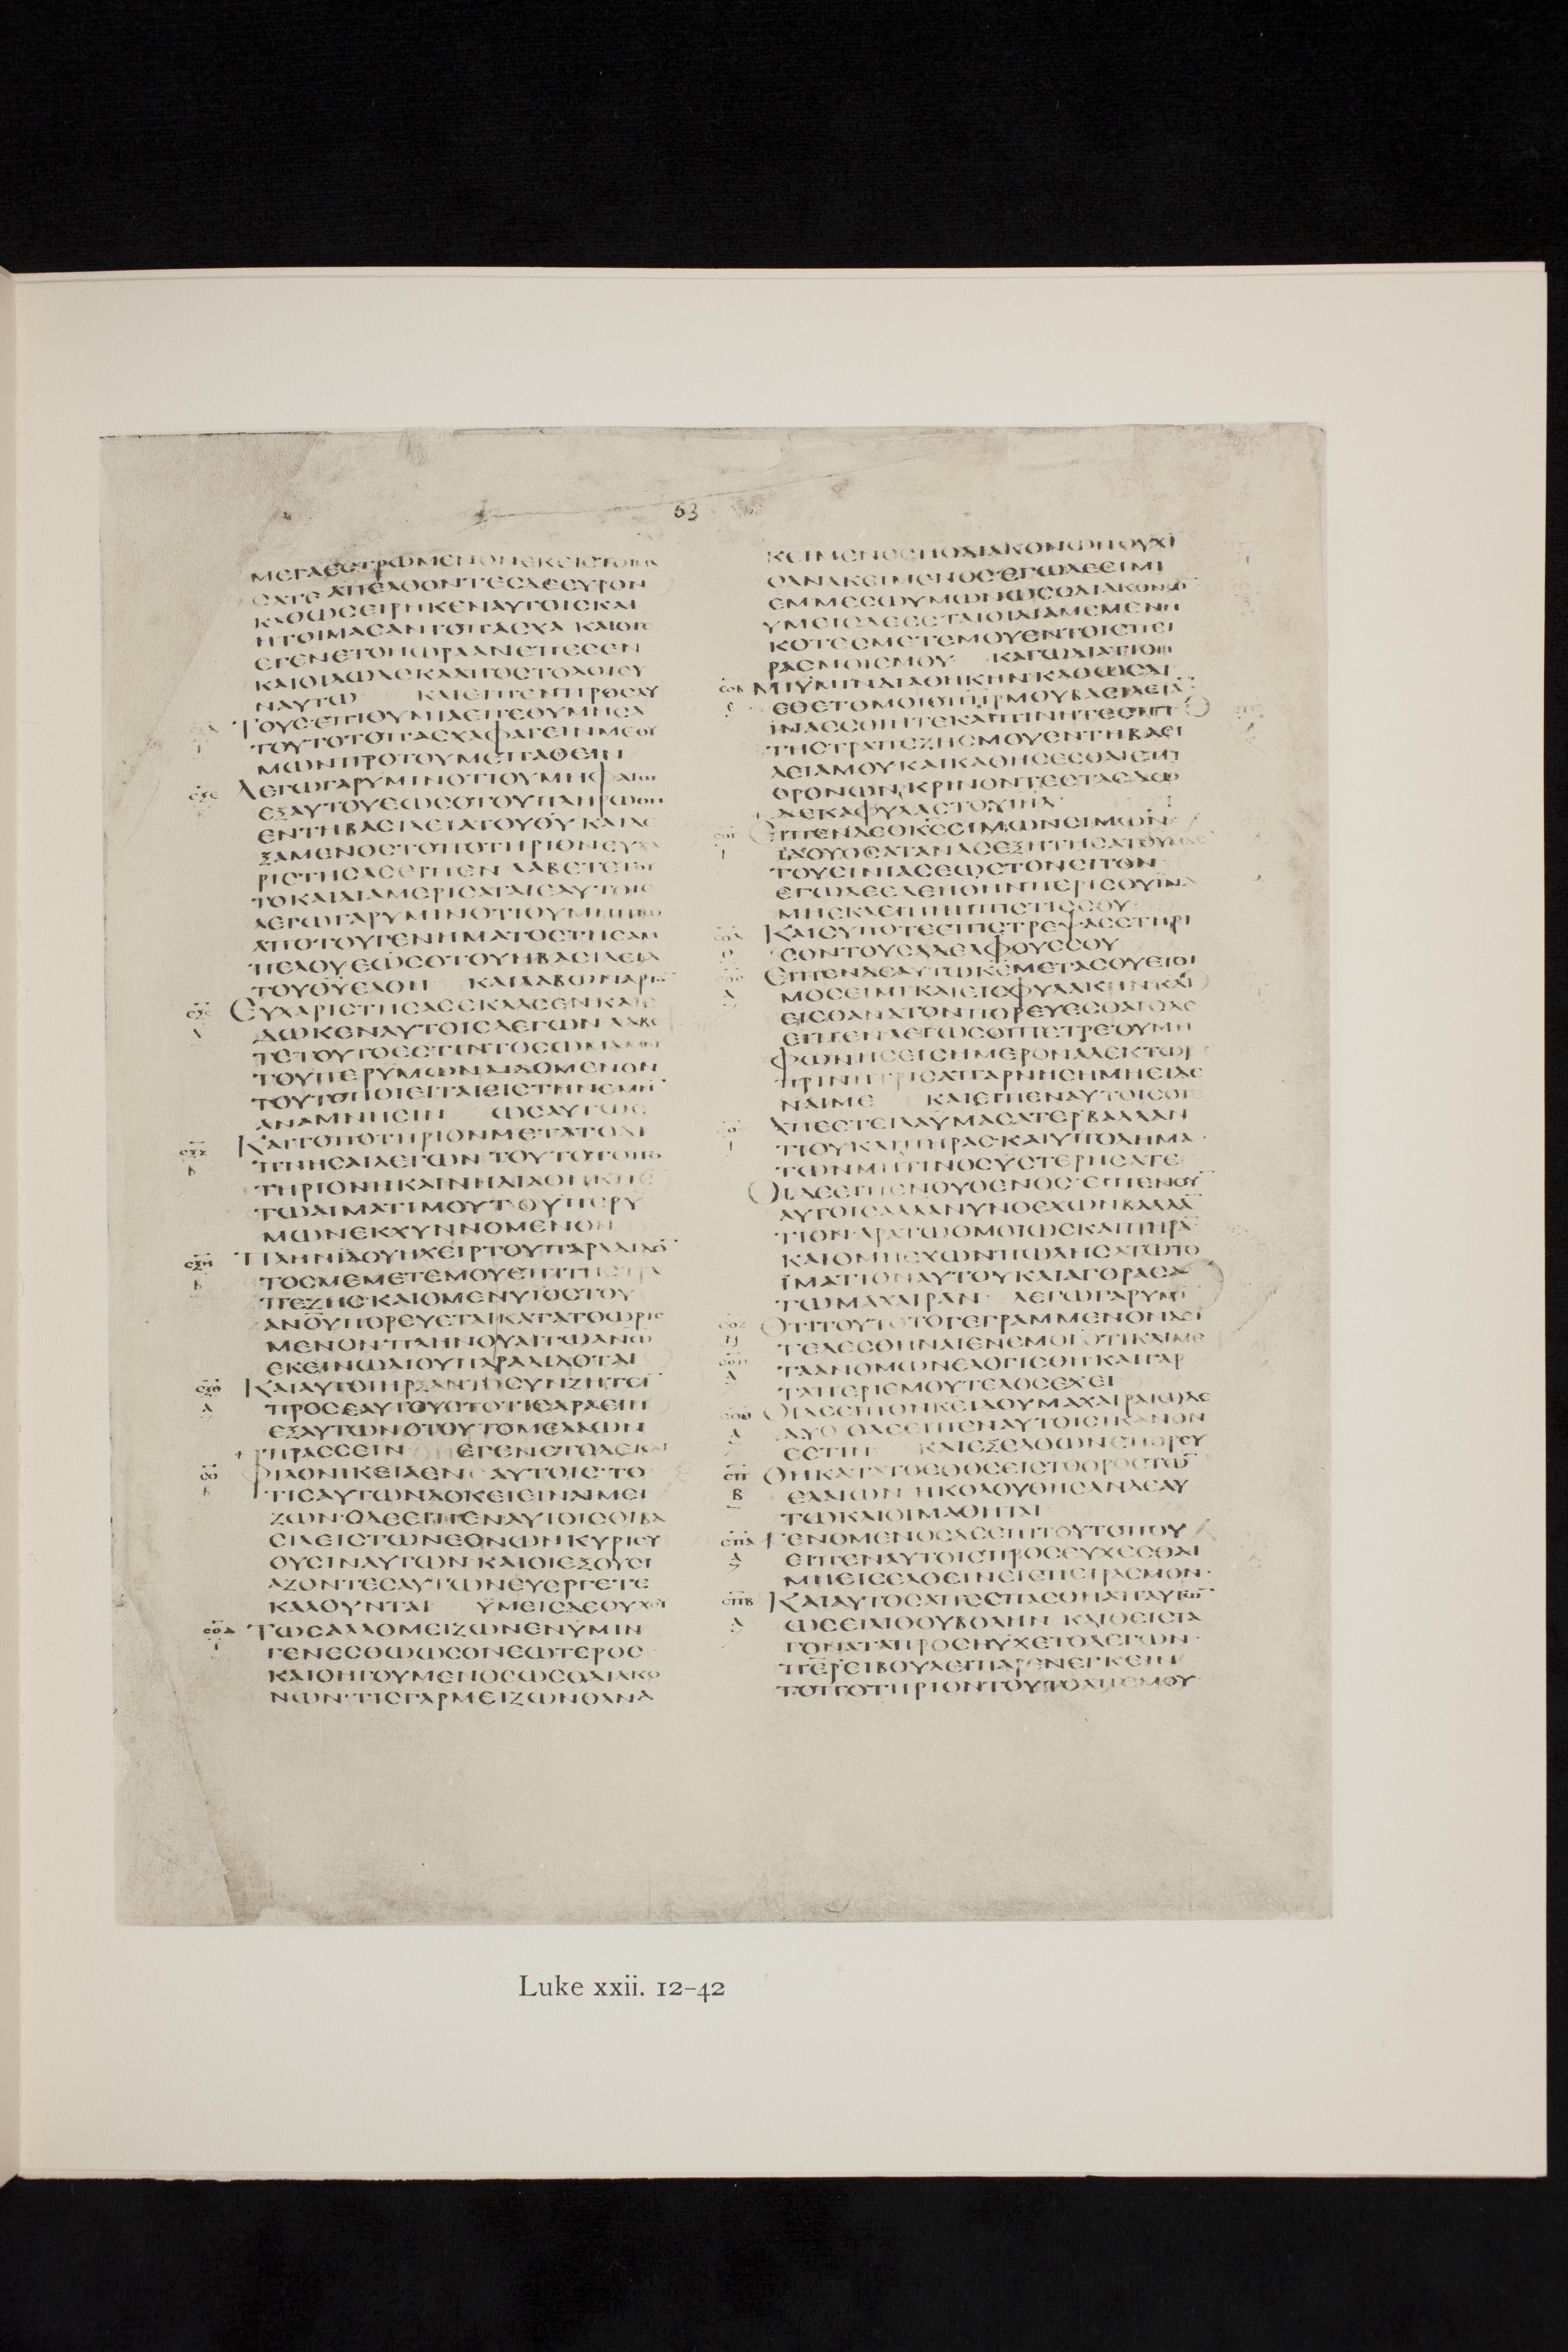 63
ΜΕΓΑΕϹΤΡΩΜΕΝΟΝΕΚΕΙΕΤΟΙΜΑ
ϹΑΤΕ ΑΠΕΛΘΟΝΤΕϹΔΕΕΥΡΟΝ
ΚΑΘΩϹΕΙΡΗΚΕΝΑΥΤΟΙϹΚΑΙ
ΗΤΟΙΜΑϹΑΝΤΟΠΑϹΧΑ ΚΑΙΟΤΕ
ΕΓΕΝΕΤΟΗΩΡΑΑΝΕΠΕϹΕΝ
ΚΑΙΟΙΔΩΔΕΚΑΑΠΟϹΤΟΛΟΙϹΥ
ΝΑΥΤΩ ΚΑΙΕΙΠΕΝΠΡΟϹΑΥ
ΤΟΥϹΕΠΙΘΥΜΙΑΕΠΕΘΥΜΗϹΑ
ΤΟΥΤΟΤΟΠΑϹΧΑΦΑΓΕΙΝΜΕΘΥ
ΜΩΝΠΡΟΤΟΥΜΕΠΑΘΕΙΝ
ϹΞΕ ΛΕΓΩΓΑΡΥΜΙΝΟΤΙΟΥΜΗΦΑΓΩ
ΕΞΑΥΤΟΥΕΩϹΟΤΟΥΠΛΗΡΩΘΗ
ΕΝΤΗΒΑϹΙΛΕΙΑΤΟΥΘ̅Υ̅ ΚΑΙΔΕ
ΞΑΜΕΝΟϹΤΟΠΟΤΗΡΙΟΝΕΥΧΑ
ΡΙϹΤΗϹΑϹΕΙΠΕΝ ΛΑΒΕΤΕΤΟΥ
ΤΟΚΑΙΔΙΑΜΕΡΙϹΑΤΑΙΕΑΥΤΟΙϹ
ΛΕΓΩΓΑΡΥΜΙΝΟΤΙΟΥΜΗΠΙΩ
ΑΠΟΤΟΥΓΕΝΗΜΑΤΟϹΤΗϹΑΜ
ΠΕΛΟΥΕΩϹΟΤΟΥΗΒΑϹΙΛΕΙΑ
ΤΟΥΘ̅Υ̅ΕΛΘΗ ΚΑΙΛΑΒΩΝΑΡΤΟ̅
ϹΞϚ ΕΥΧΑΡΙϹΤΗϹΑϹΕΚΛΑϹΕΝΚΑΙΕ
Α ΔΩΚΕΝΑΥΤΟΙϹΛΕΓΩΝ ΛΑΒΕ
ΤΕΤΟΥΤΟΕϹΤΙΝΤΟϹΩΜΑΜΟΥ
ΤΟΥΠΕΡΥΜΩΝΔΙΔΟΜΕΝΟΝ
ΤΟΥΤΟΠΟΙΕΙΤΑΙΕΙϹΤΗΝΕΜΗ̅
ΑΝΑΜΝΗϹΙΝ ΩϹΑΥΤΩϹ
ϹΞΖ ΚΑΙΤΟΠΟΤΗΡΙΟΝΜΕΤΑΤΟΔΙ
Β ΠΝΗϹΑΙΛΕΓΩΝ ΤΟΥΤΟΤΟΠΟ
ΤΗΡΙΟΝΗΚΑΙΝΗΔΙΑΘΗΚΗΕ
ΤΩΑΙΜΑΤΙΜΟΥΤΟΥΠΕΡΥ
ΜΩΝΕΚΧΥΝΝΟΜΕΝΟΝ
ϹΞΗ ΠΛΗΝΙΔΟΥΗΧΕΙΡΤΟΥΠΑΡΑΔΙΔΟ̅
Β ΤΟϹΜΕΜΕΤΕΜΟΥΕΠΙΤΗϹΤΡΑ
ΠΕΖΗϹ·ΚΑΙΟΜΕΝΥΙΟϹΤΟΥ
ΑΝ̅Ο̅Υ̅ΠΟΡΕΥΕΤΑΙΚΑΤΑΤΟΩΡΙϹ
ΜΕΝΟΝ·ΠΛΗΝΟΥΑΙΤΩΑΝ̅Ω̅
ΕΚΕΙΝΩΔΙΟΥΠΑΡΑΔΙΔΟΤΑΙ
ϹΞΘ ΚΑΙΑΥΤΟΙΗΡΞΑΝΤΟϹΥΝΖΗΤΕΙ̅
Α ΠΡΟϹΕΑΥΤΟΥϹΤΟΤΙϹΑΡΑΕΙΗ
ΕΞΑΥΤΩΝΟΤΟΥΤΟΜΕΛΛΩΝ
ΠΡΑϹϹΕΙΝ ΕΓΕΝΕΤΟΔΕΚΑΙ
ϹΟ ΦΙΛΟΝΙΚΕΙΑΕΝ ΑΥΤΟΙϹ·ΤΟ
Β ΤΙϹΑΥΤΩΝΔΟΚΕΙΕΙΝΑΙΜΕΙ
ΖΩΝ·ΟΔΕΕΙΠΕΝΑΥΤΟΙϹΟΙΒΑ
ϹΙΛΕΙϹΤΩΝΕΘΝΩΝΚΥΡΙΕΥ
ΟΥϹΙΝΑΥΤΩΝ·ΚΑΙΟΙΕΞΟΥϹΙ
ΑΖΟΝΤΕϹΑΥΤΩΝΕΥΕΡΓΕΤΕ
ΚΑΛΟΥΝΤΑΙ ΥΜΕΙϹΔΕΟΥΧΟΥ
ϹΟΑ ΤΩϹΑΛΛΟΜΕΙΖΩΝΕΝΥΜΙΝ
ΓΕΝΕϹΘΩΩϹΟΝΕΩΤΕΡΟϹ·
ΚΑΙΟΗΓΟΥΜΕΝΟϹΩϹΟΔΙΑΚΟ
ΝΩΝ·ΤΙϹΓΑΡΜΕΙΖΩΝΟΑΝΑ
ΚΕΙΜΕΝΟϹΗΟΔΙΑΚΟΝΩΝΟΥΧΙ
ΟΑΝΑΚΕΙΜΕΝΟϹ·ΕΓΩΔΕΕΙΜΙ
ΕΜΜΕϹΩΥΜΩΝΩϹΟΔΙΑΚΟΝΩ̅
ΥΜΕΙϹΔΕΕϹΤΑΙΟΙΔΙΑΜΕΜΕΝΗ
ΚΟΤΕϹΜΕΤΕΜΟΥΕΝΤΟΙϹΠΕΙ
ΡΑϹΜΟΙϹΜΟΥ ΚΑΓΩΔΙΑΤΙΘΗ
ϹΟΒ ΜΙΥΜΙΝΔΙΑΘΗΚΗΝΚΑΘΩϹΔΙ
ΕΘΕΤΟΜΟΙΟΠ̅Η̅Ρ̅ΜΟΥΒΑϹΙΛΕΙΑ̅
ΙΝΑΕϹΘΗΤΕΚΑΙΠΙΝΗΤΕΕΠΙ
ΤΗϹΤΡΑΠΕΖΗϹΜΟΥΕΝΤΗΒΑϹΙ
ΛΕΙΑΜΟΥΚΑΙΚΑΘΗϹΕϹΘΑΙΕΠΙ
ΘΡΟΝΩΝ,ΚΡΙΝΟΝΤΕϹΤΑϹΔΩ
ΔΕΚΑΦΥΛΑϹΤΟΥΙ̅Η̅Λ̅
ΕΙΠΕΝΔΕΟΚ̅Ϲ̅ϹΙΜΩΝϹΙΜΩΝ
ΙΔΟΥΟϹΑΤΑΝΑϹΕΞΗΤΗϹΑΤΟΥΜΑϹ
ΤΟΥϹΙΝΙΑϹΕΩϹΤΟΝϹΙΤΟΝ
ΕΓΩΔΕΕΔΕΗΘΗΝΠΕΡΙϹΟΥΙΝΑ
ΜΗΕΚΛΕΙΠΗΗΠΙϹΤΙϹϹΟΥ·
ΚΑΙϹΥΠΟΤΕΕΠΙϹΤΡΕΨΑϹϹΤΗΡΙ
ϹΟΝΤΟΥϹΑΔΕΛΦΟΥϹϹΟΥ
ΕΙΠΕΝΔΕΑΥΤΩΚ̅Ε̅ΜΕΤΑϹΟΥΕΤΟΙ
Α ΜΟϹΕΙΜΙΚΑΙΕΙϹΦΥΛΑΚΗΝΚΑΙ
ΕΙϹΘΑΝΑΤΟΝΠΟΡΕΥΕϹΘΑΙΟΔΕ
ΕΙΠΕΝΛΕΓΩϹΟΙΠΕΤΡΕΟΥΜΗ
ΦΩΝΗϹΕΙϹΗΜΕΡΟΝΑΛΕΚΤΩΡ
ΠΡΙΝΗΤΡΙϹΑΠΑΡΝΗϹΗΜΗΕΙΔΕ
ΝΑΙΜΕ ΚΑΙΕΙΠΕΝΑΥΤΟΙϹΟΤΕ
ΑΠΕϹΤΕΙΛΑΥΜΑϹΑΤΕΡΒΑΛΛΑΝ
Ι ΤΙΟΥΚΑΙΠΗΡΑϹ·ΚΑΙΥΠΟΔΗΜΑ·
ΤΩΝΜΗΤΙΝΟϹΥϹΤΕΡΗϹΑΤΕ
ΟΙΔΕΕΙΠΕΝΟΥΘΕΝΟϹ·ΕΙΠΕΝΟΥ̅
ΑΥΤΟΙϹΑΛΛΑΝΥΝΟΕΧΩΝΒΑΛΛΑ̅
ΤΙΟΝ·ΑΡΑΤΩΟΜΟΙΩϹΚΑΙΠΗΡΑ̅
ΚΑΙΟΜΗΕΧΩΝΠΩΛΗϹΑΤΩΤΟ
ΙΜΑΤΙΟΝΑΥΤΟΥΚΑΙΑΓΟΡΑϹΑ
ΤΩΜΑΧΑΙΡΑΝ· ΛΕΓΩΓΑΡΥΜΙ̅
ϹΟΖ ΟΤΙΤΟΥΤΟΤΟΓΕΓΡΑΜΜΕΝΟΝΔΕΙ
Η ΤΕΛΕϹΘΗΝΑΙΕΝΕΜΟΙ·ΟΤΙΚΑΙΜΕ
ϹΟΗ ΤΑΑΝΟΜΩΝΕΛΟΓΙϹΘΗ·ΚΑΙΓΑΡ
Α ΤΑΠΕΡΙΕΜΟΥΤΕΛΟϹΕΧΕΙ
ϹΟΘ ΟΙΔΕΕΙΠΟΝΚ̅Ε̅ΙΔΟΥΜΑΧΑΙΡΑΙΩΔΕ
ΔΥΟ ΟΔΕΕΙΠΕΝΑΥΤΟΙϹΙΚΑΝΟΝ
ΕϹΤΙΝ ΚΑΙΕΞΕΛΘΩΝΕΠΟΡΕΥ
ϹΠ ΘΗΚΑΤΑΤΟΕΘΟϹΕΙϹΤΟΟΡΟϹΤΩ̅
Β ΕΛΑΙΩΝ ΗΚΟΛΟΥΘΗϹΑΝΔΕΑΥ
ΤΩΚΑΙΟΙΜΑΘΗΤΑΙ
ϹΠΑ ΓΕΝΟΜΕΝΟϹΔΕΕΠΙΤΟΥΤΟΠΟΥ
Ϛ ΕΙΠΕΝΑΥΤΟΙϹΠΡΟϹΕΥΧΕϹΘΑΙ
ΜΗΕΙϹΕΛΘΕΙΝΕΙϹΠΕΙΡΑϹΜΟΝ·
ϹΠΒ ΚΑΙΑΥΤΟϹΑΠΕϹΠΑϹΘΗΑΠΑΥΤΩ̅
Α ΩϹΕΙΛΙΘΟΥΒΟΛΗΝ ΚΑΙΘΕΙϹΤΑ
ΓΟΝΑΤΑΠΡΟϹΗΥΧΕΤΟΛΕΓΩΝ·
Π̅Ε̅Ρ̅ΕΙΒΟΥΛΕΙΠΑΡΕΝΕΓΚΕΙΝ
ΤΟΠΟΤΗΡΙΟΝΤΟΥΤΟΑΠΕΜΟΥ·
Luke xxii. 12–42